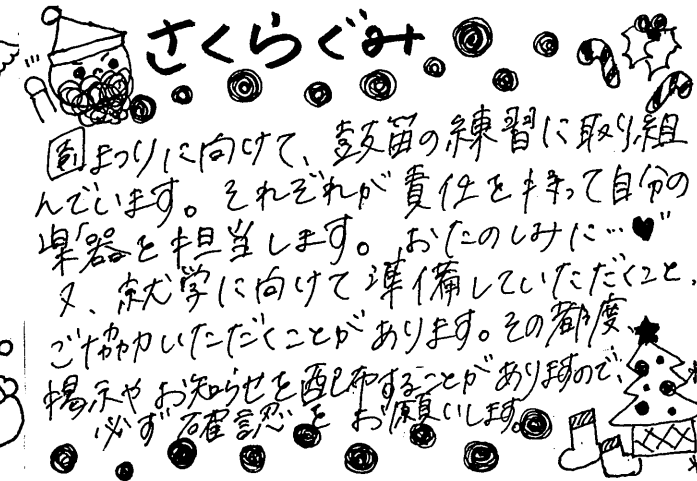 さくらぐみ
創まつりに向けて、鼓笛の練習に取り組
んでいます。それぞれが責任を持って自分の
楽器を担当します。おたのしみに…♥
又、就学に向けて準備していただくこと、
ご協力いただくことがあります。その都度、
掲示やお知らせを配布することがありますので、
必ず確認をお願いします。